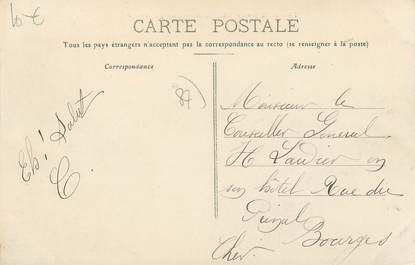 10 €
CARTE POSTALE
Tous les pays étrangers n'acceptent pas la correspondance au recto (se renseigner à la poste)
Correspondance
Adresse
87
Eh! Salut
C.
Monsieur le
Conseiller Général
H
en
son hôtel Rue du
Bourges
Cher